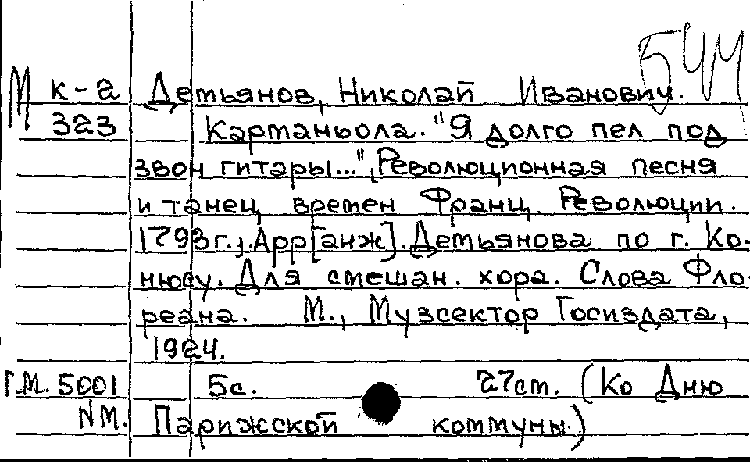 544
М к-а Детьянов, Николай Иванович.
323 Картаньола. "Я долго пел под
звон гитары...", Революционная песня
и танец времен Франц. Революции.
1793г.). Арр[анж]. Детьянова по г. Ко-
нюсу. Для смешан. хора. Слова Фло-
реана. М., Музсектор Госиздата,
1924.
Г.М. 5001 5с. 27ст. (Ко Дню
NM. Парижской коммуны)